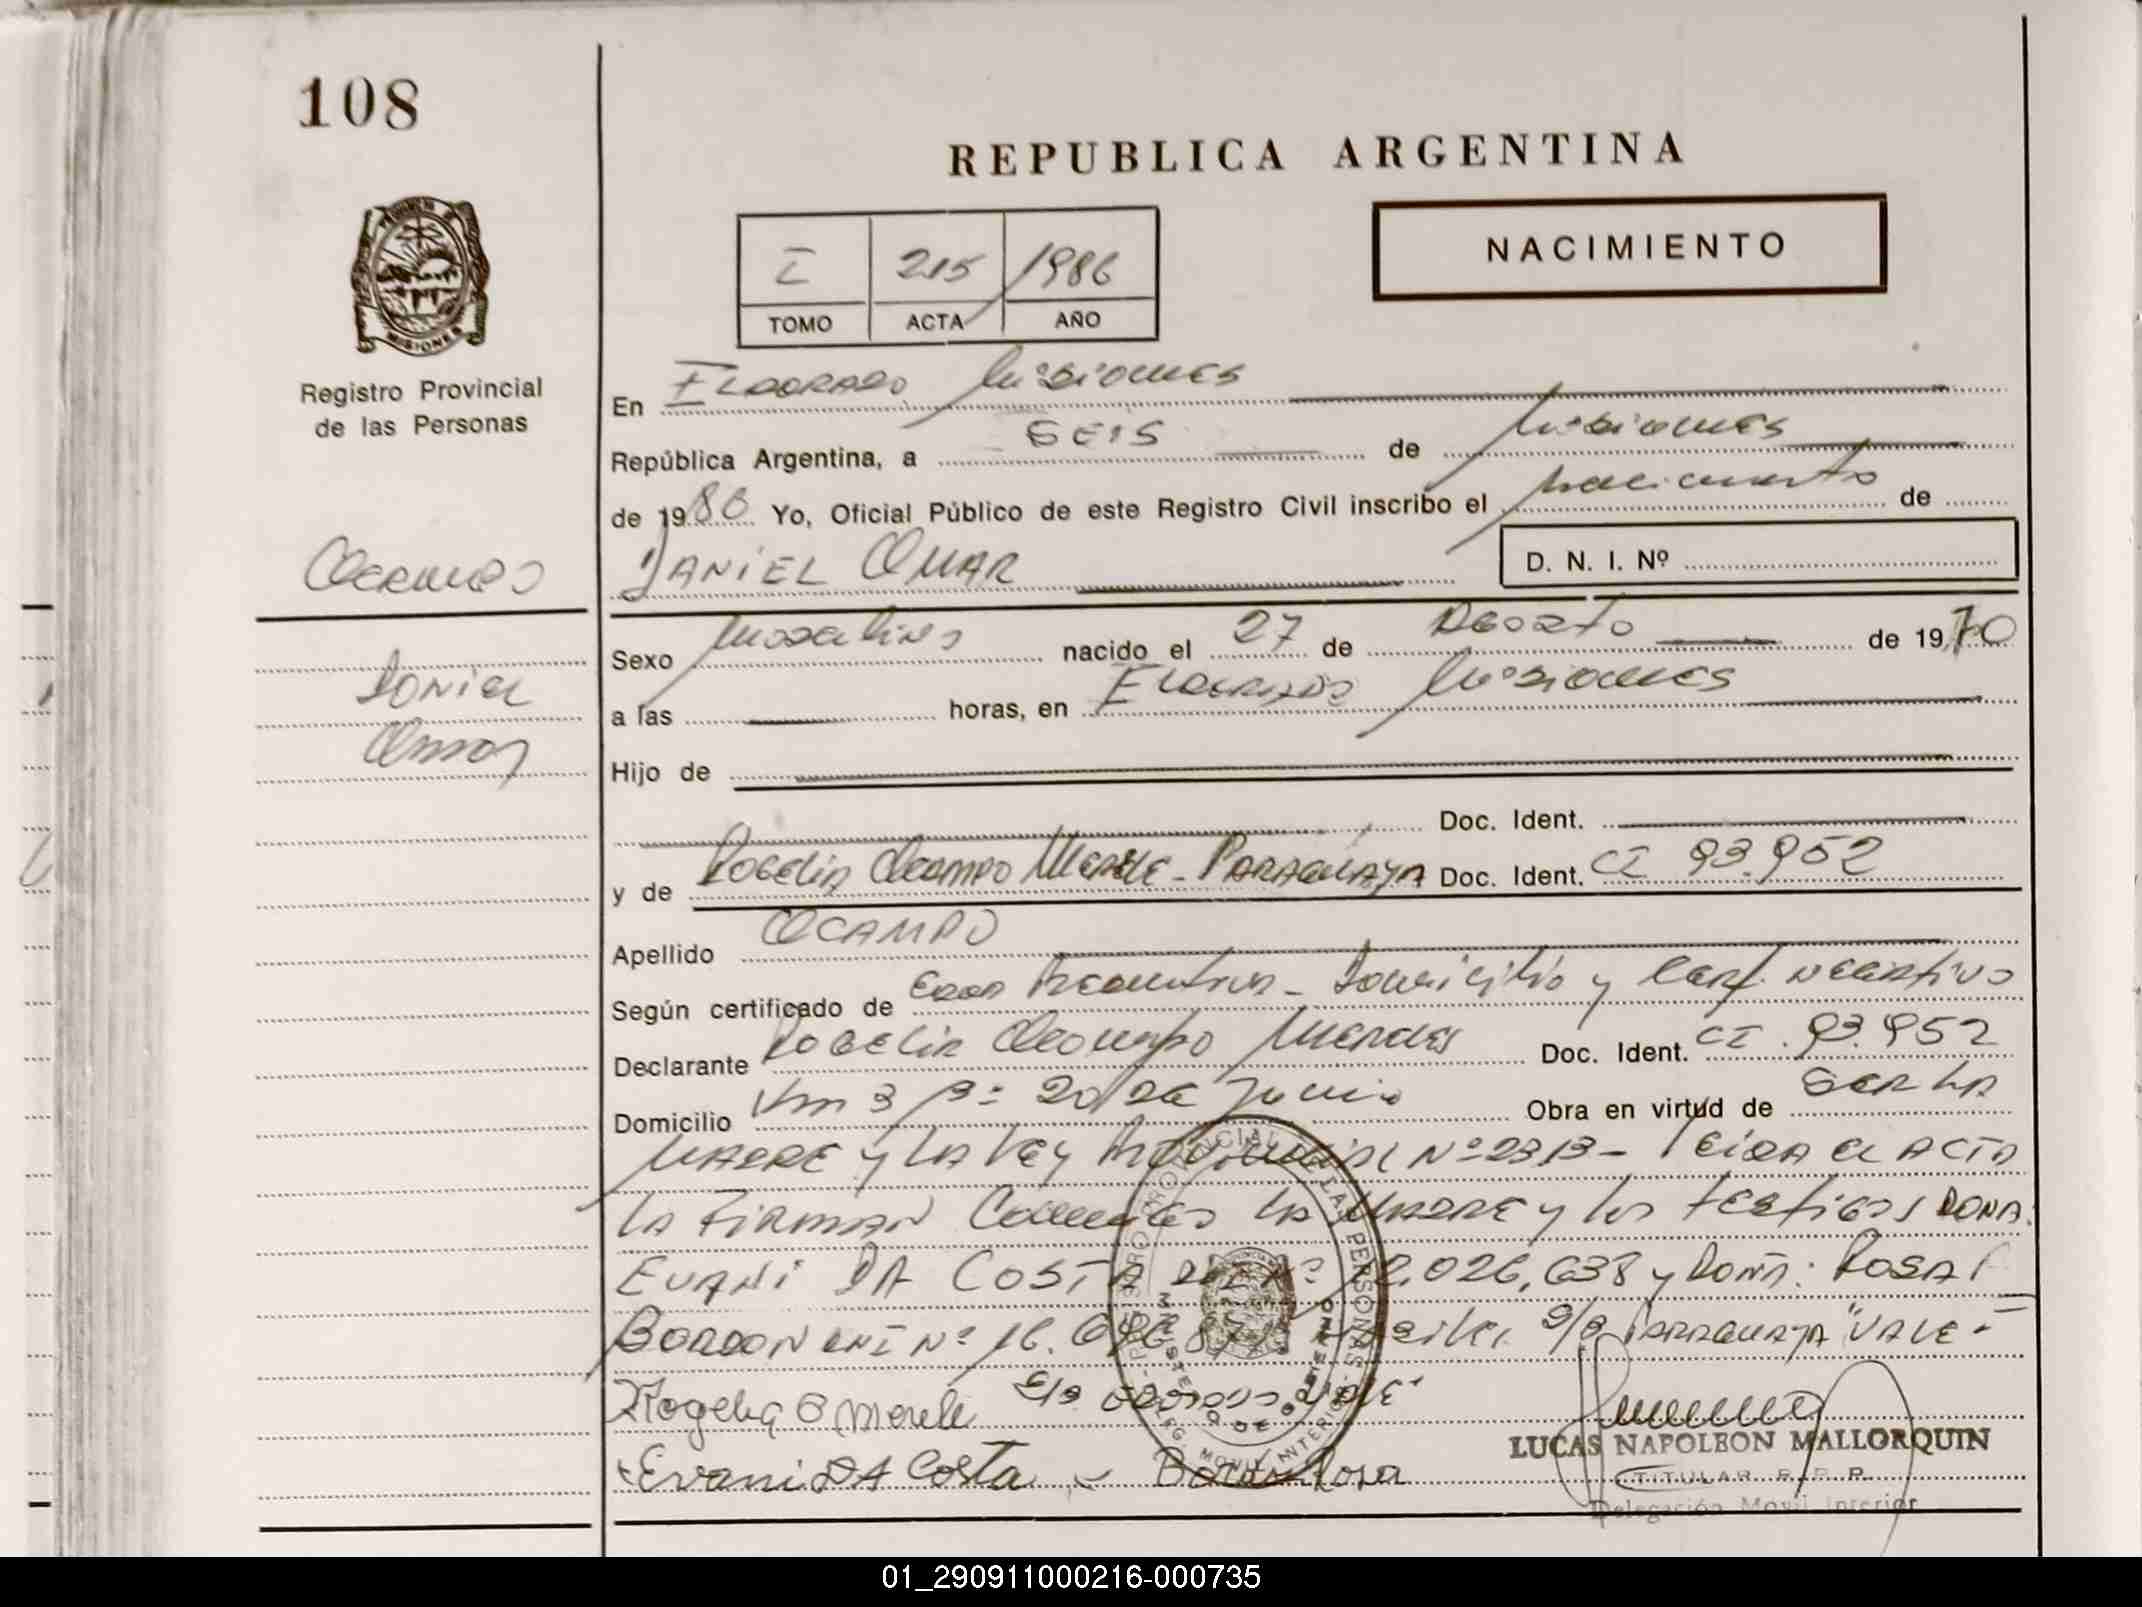 108
REPUBLICA ARGENTINA
NACIMIENTO
I 215 1986
TOMO ACTA AÑO
PROVINCIA DE MISIONES
Registro Provincial
de las Personas
En ELDORADO Misiones
República Argentina, a SEIS de Misiones
de 1986 Yo, Oficial Público de este Registro Civil inscribo el nacimiento de
Ocampo
DANIEL OMAR
D. N. I. Nº
Daniel
Omar
Sexo Masculino nacido el 27 de Agosto de 1970
a las horas, en Eldorado Misiones
Hijo de
Doc. Ident.
y de Rogelia Ocampo Merele - PARAGUAYA Doc. Ident. CI 93.952
Apellido OCAMPO
Según certificado de Edad Presuntiva - Domicilio y Cert. negativo
Declarante Rogelia Ocampo Doc. Ident. CI. 93.952
Domicilio Km 3 Bº 20 de Junio Obra en virtud de SER LA
MADRE y LA Ley Provincial Nº 2313 - Leida el ACTA
LA FIRMAN Conmigo LA MADRE y los testigos DOÑA:
EVANI DA COSTA Nº 12.026,638 y Doña: ROSA
BORDON DNI Nº 16. S/R PARAGUAYA "VALE"
Rogelia O Merele
Evani DA Costa Bordon Rosa
REGISTRO PROVINCIAL DE LAS PERSONAS
MINISTERIO DE GOBIERNO
DELEG. MOVIL INTERIOR
LUCAS NAPOLEON MALLORQUIN
TITULAR R. P. P.
Delegación Movil Interior
01_290911000216-000735